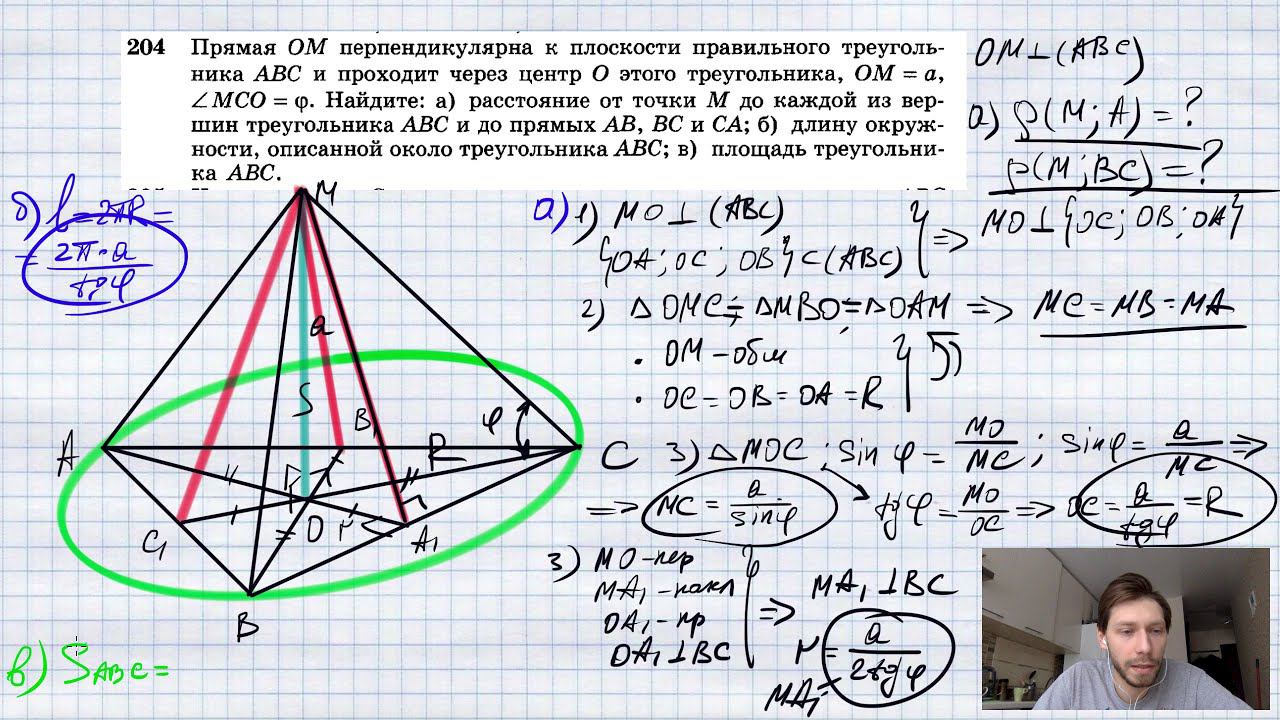 204 Прямая OM перпендикулярна к плоскости правильного треуголь-
ника ABC и проходит через центр O этого треугольника, OM = a,
∠MCO = φ. Найдите: а) расстояние от точки M до каждой из вер-
шин треугольника ABC и до прямых AB, BC и CA; б) длину окруж-
ности, описанной около треугольника ABC; в) площадь треугольни-
ка ABC.
OM⊥(ABC)
а) ρ(M;A)=?
ρ(M;BC)=?
б) l=2πR=
= 2π·a / tgφ
M
a
S
B₁
φ
R
A
C
O
r
C₁
A₁
B
а) 1) MO⊥(ABC)
{OA; OC; OB}⊂(ABC) } => MO⊥{OC; OB; OA}
2) △OMC=△MBO=△OAM => MC=MB=MA
• OM-общ
• OC=OB=OA=R
3) △MOC; sinφ= MO/MC; sinφ= a/MC =>
=> MC= a/sinφ tgφ= MO/OC => OC= a/tgφ =R
3) MO-пер
MA₁-накл
OA₁-пр
OA₁⊥BC
=> MA₁⊥BC
r= a/2tgφ
MA₁=
в) S ABC=